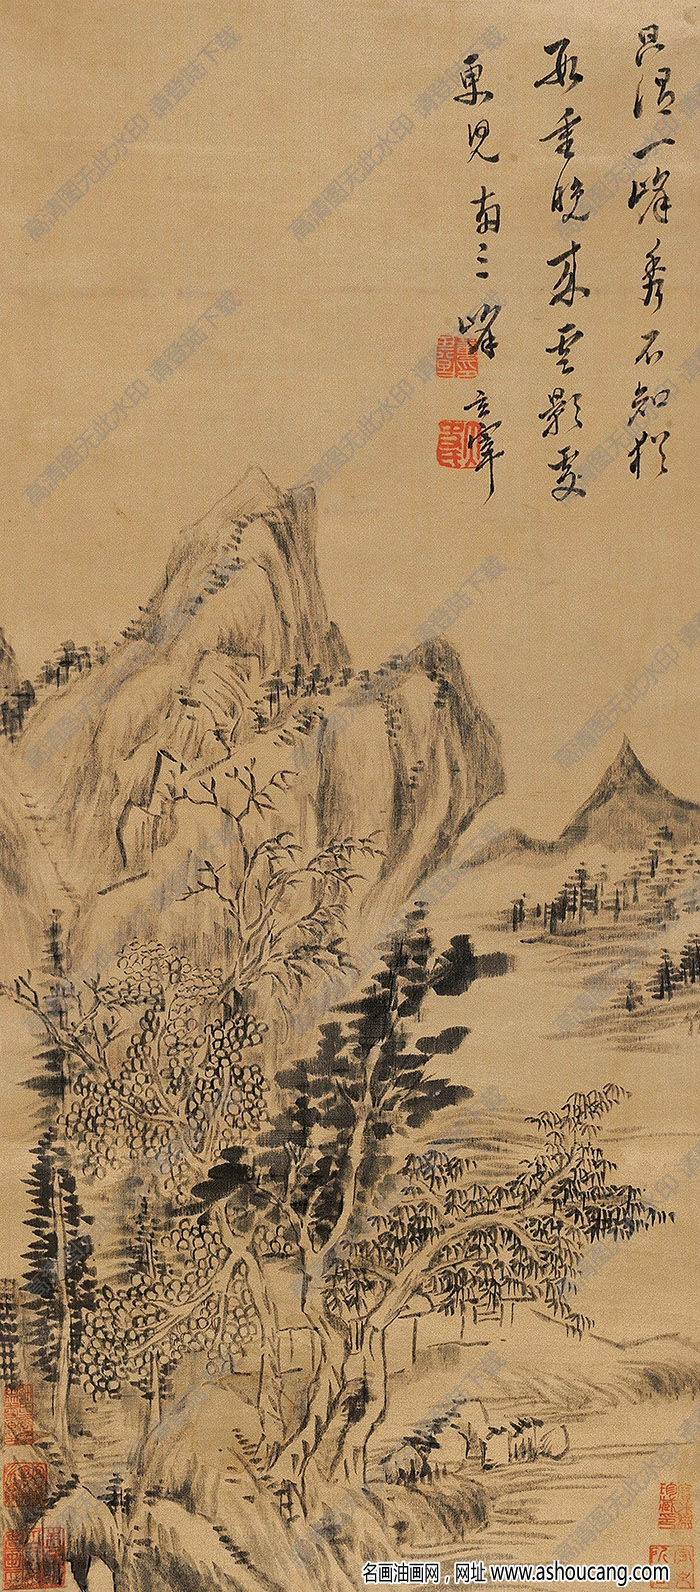 只謂一峰秀不知猶
數重晚來雲影處
更見兩三峰 玄宰
高清图无此水印 请登陆下载
名画油画网，网址 www.ashoucang.com